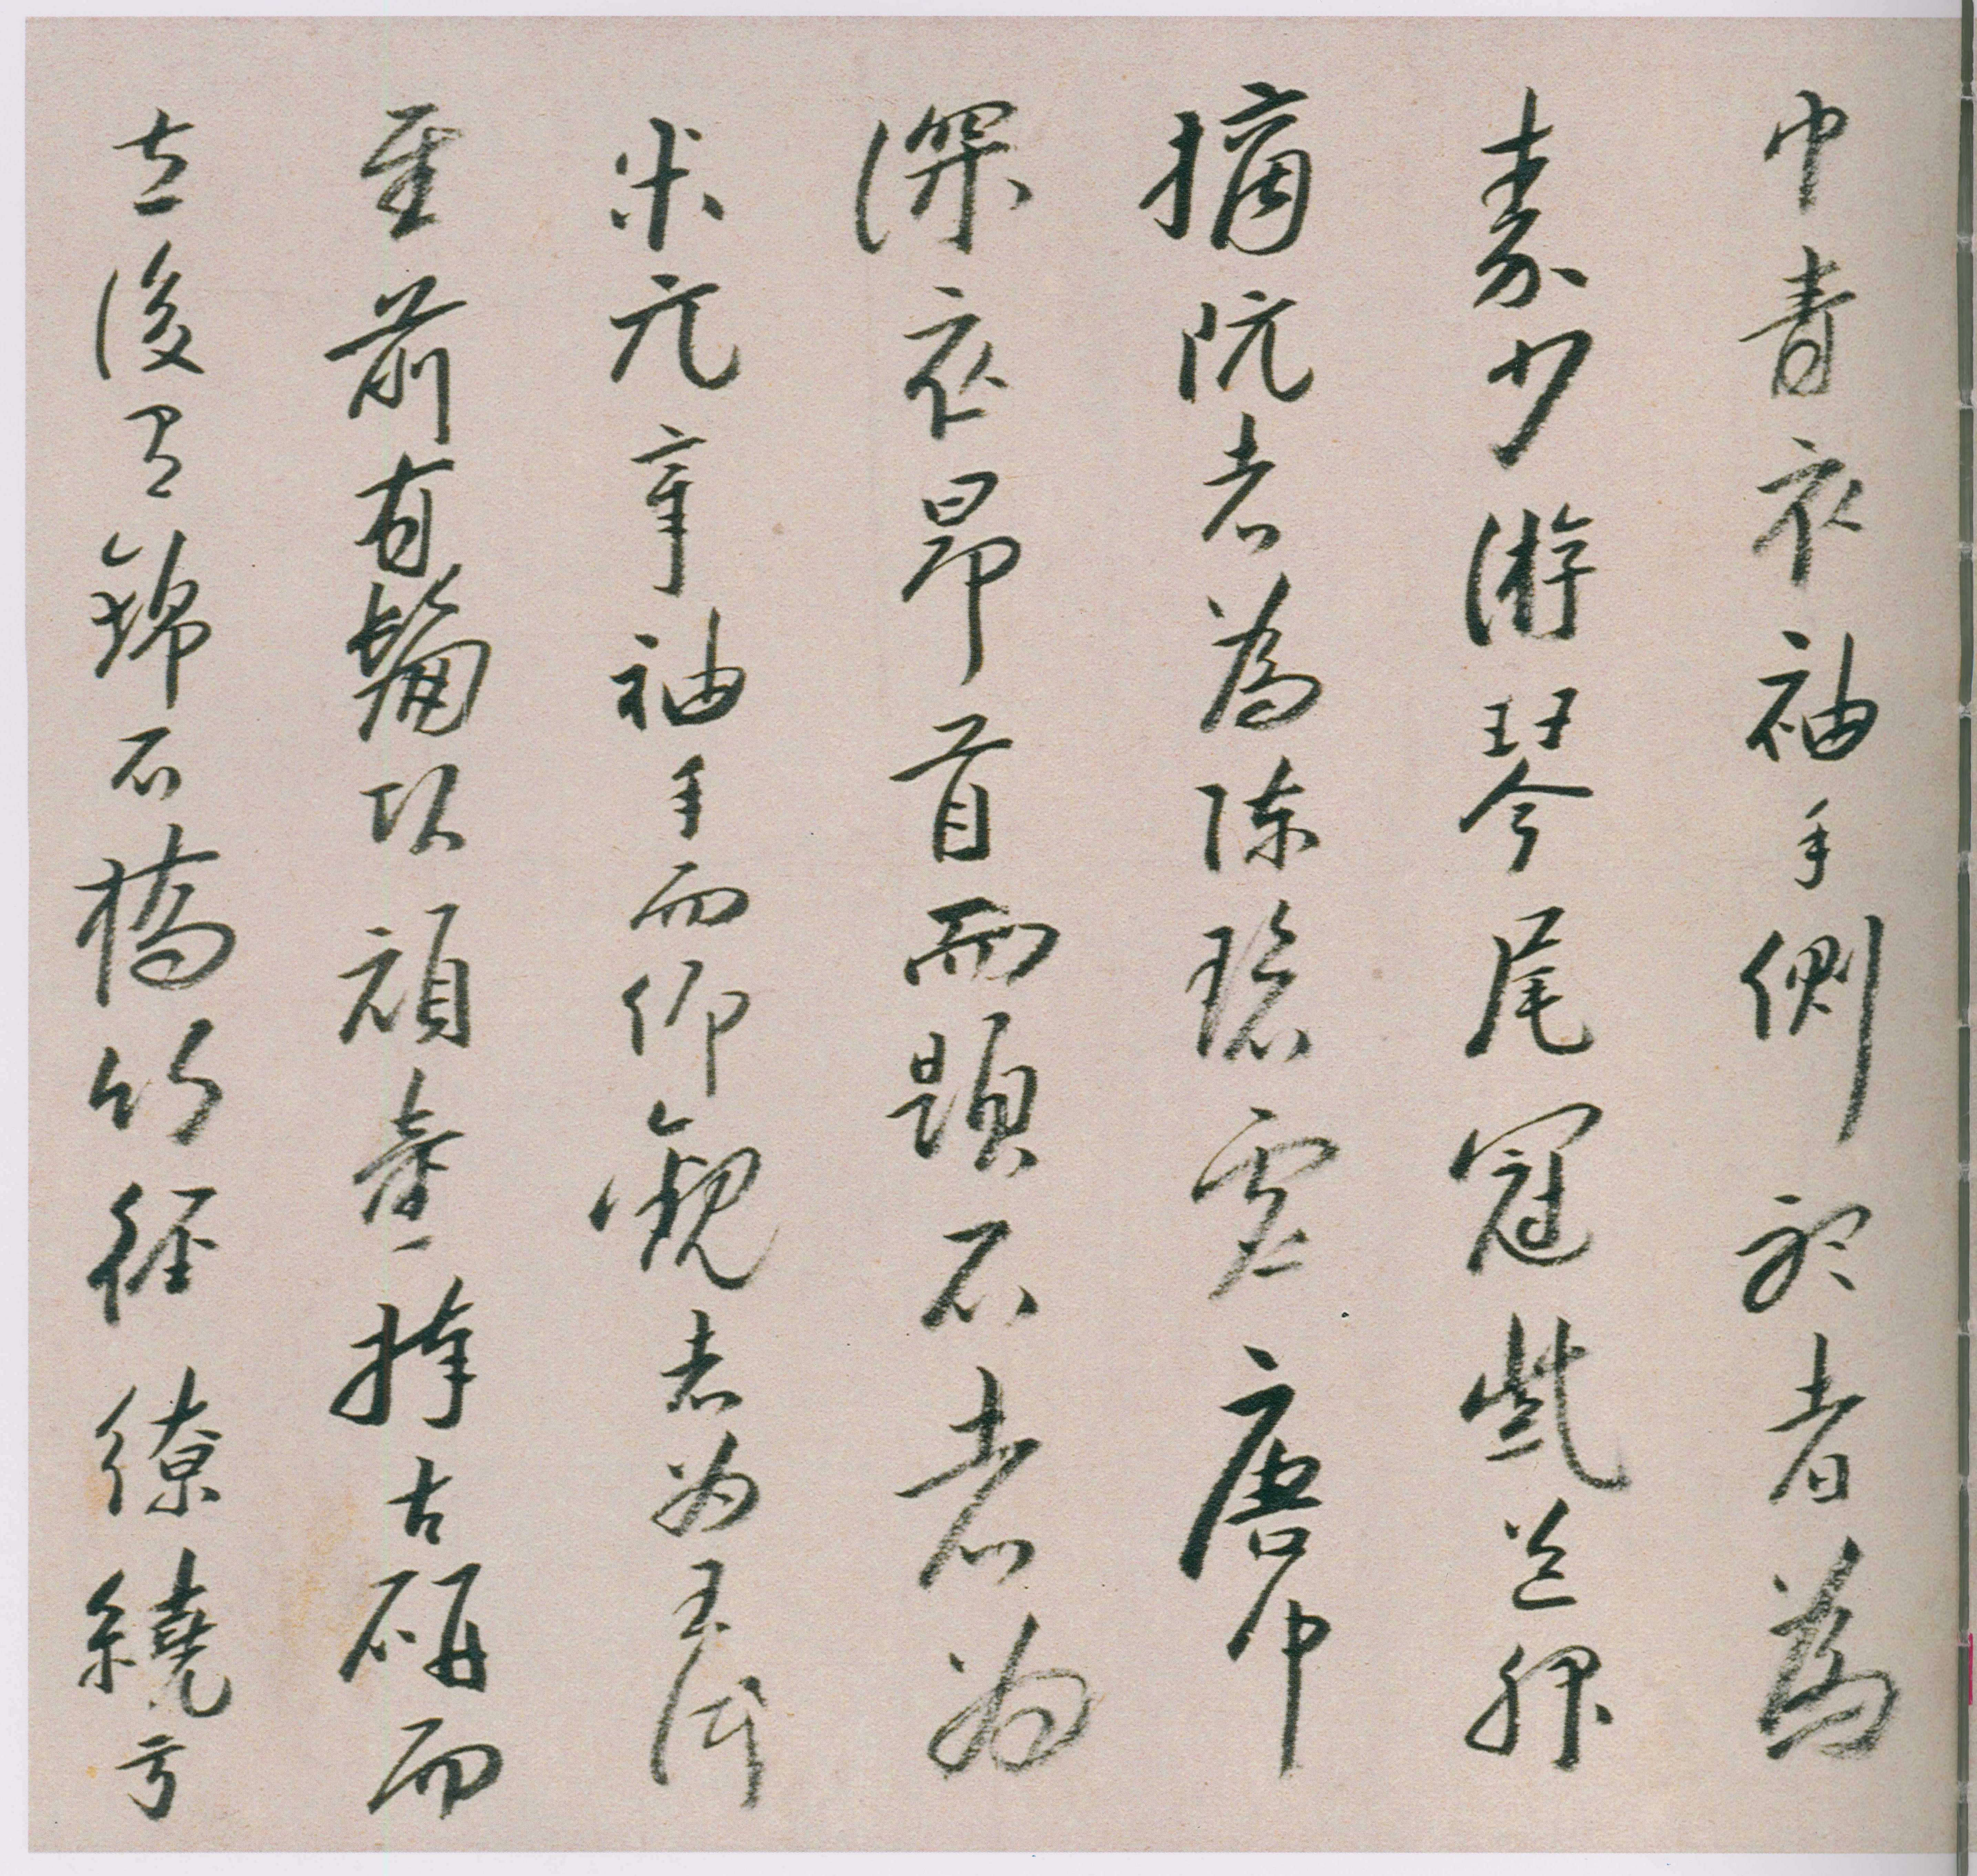 巾青衣袖手側聽者為
秦少游琴尾冠紫道服
摘阮者為陳碧虛唐巾
深衣昂首而題石者為
米元章袖手而仰觀者为王仲
至前有鬅頭頑童捧古硯而
立後有錦石橋竹徑繚繞亏